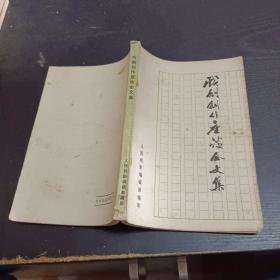 戏剧创作座谈会文集
人民戏剧编辑部编
戏剧创作座谈会文集
人民戏剧编辑部编